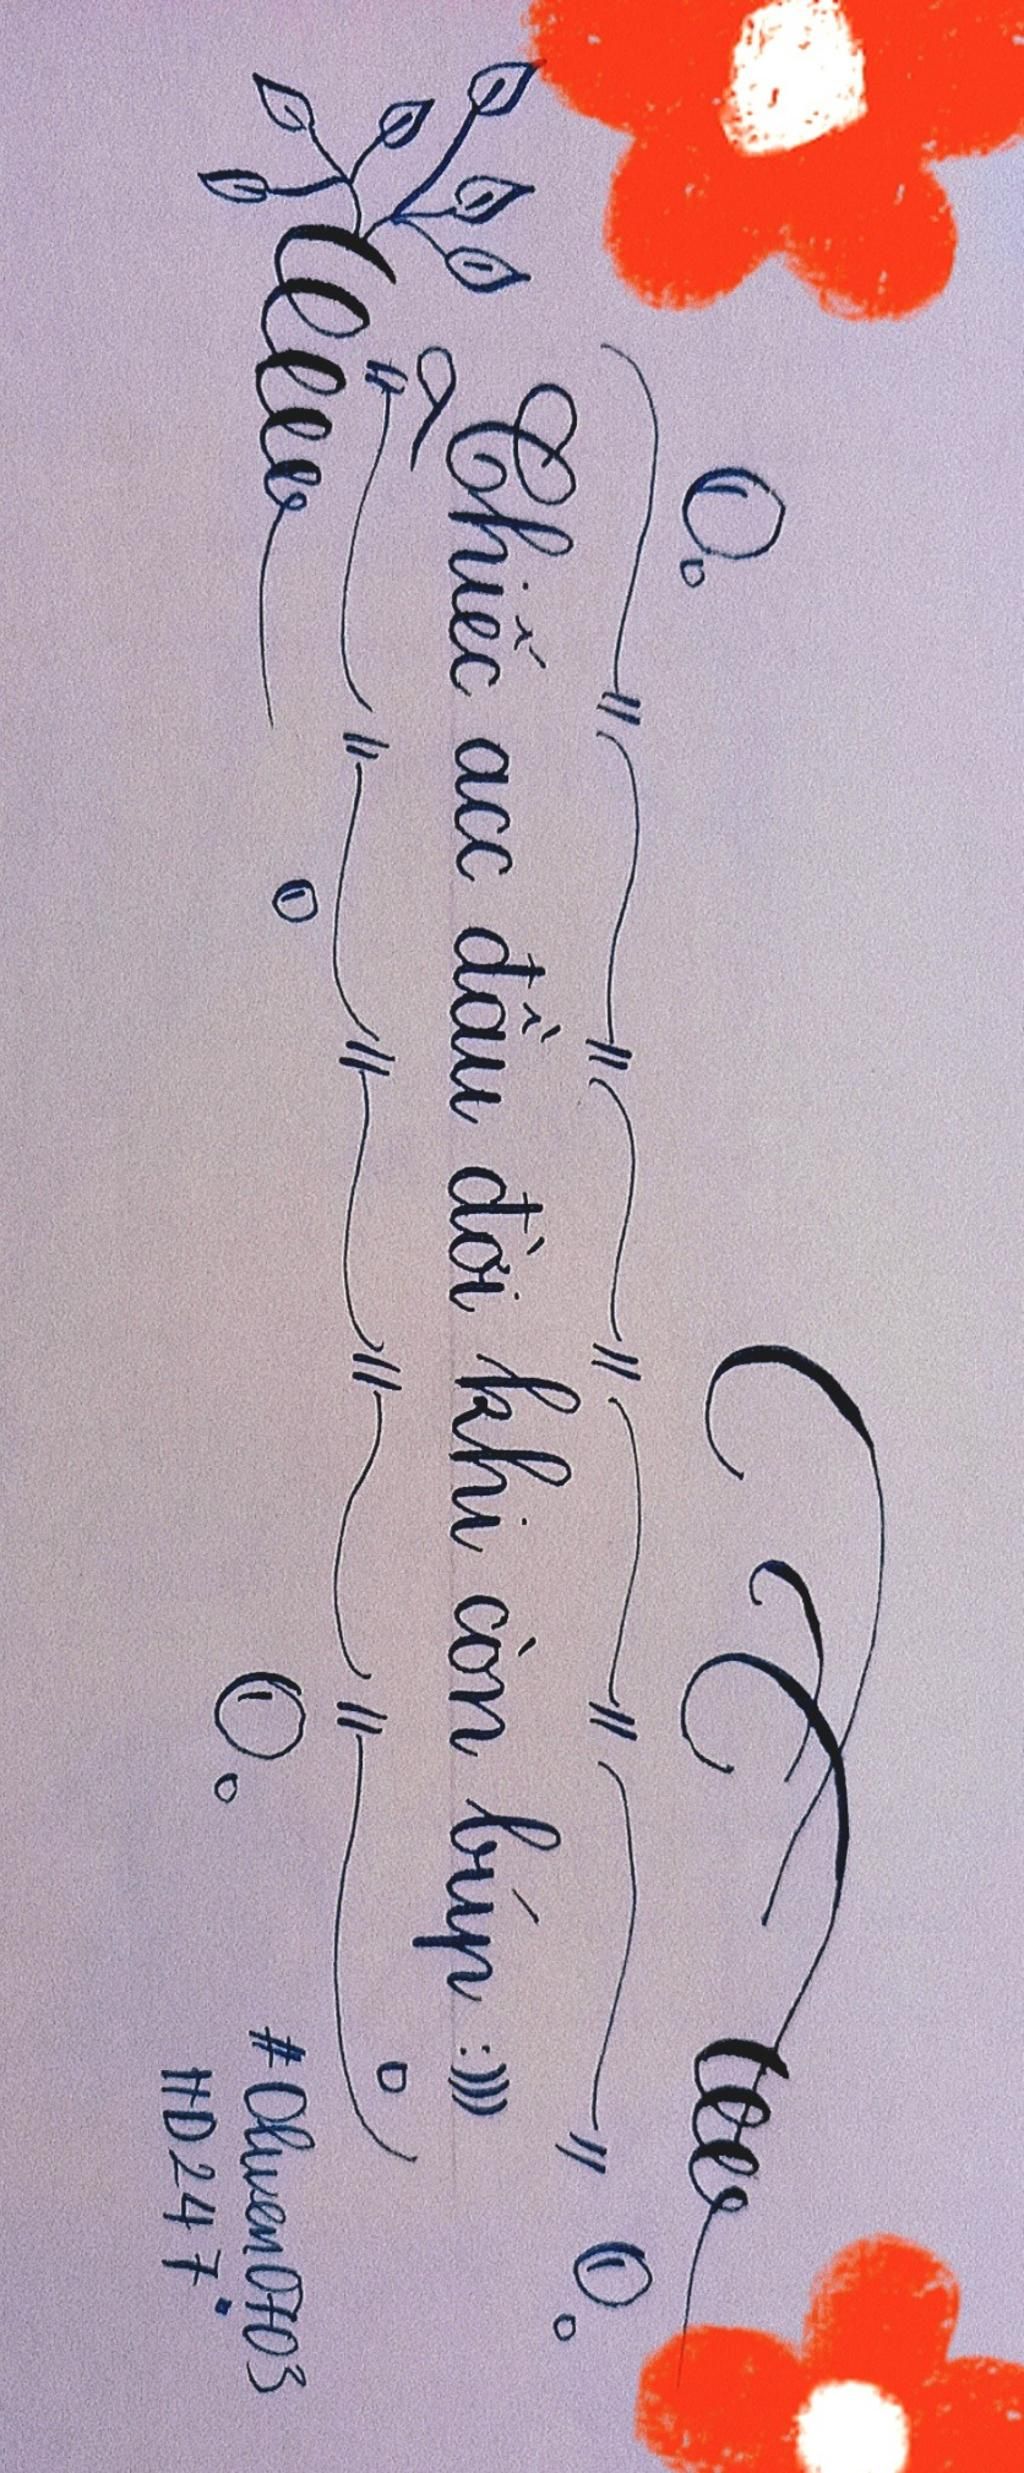 Chiếc acc đầu đời khi còn búp :)))
HD247